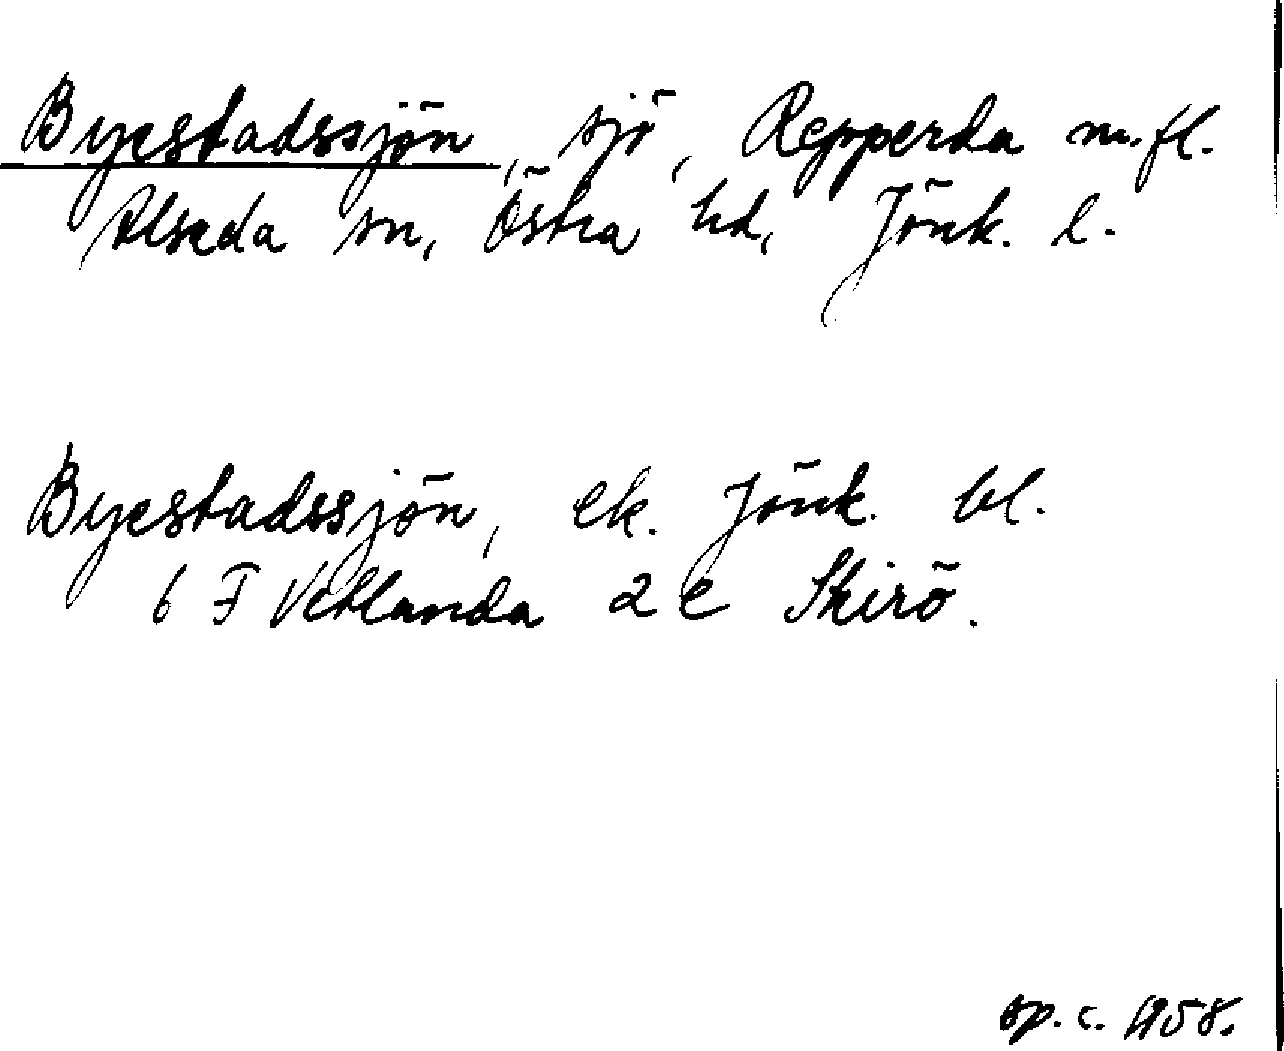 Byestadssjön, sjö, Repperda m.fl.
Alseda sn, Östra hd, Jönk. l.
Byestadssjön, ek. Jönk. bl.
6 F Vetlanda 2 e Skirö.
sp. c. 1958.